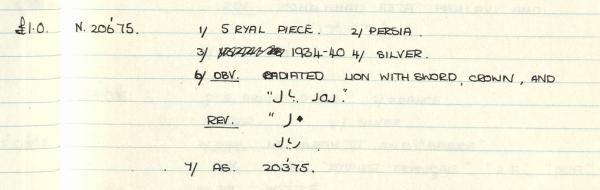 £1.0. N. 20675. 1/ 5 RYAL PIECE. 2/ PERSIA.
3/ 1934-40 4/ SILVER.
6/ OBV. RADIATED LION WITH SWORD, CROWN, AND
REV.
ریال
7/ AS. 20375.